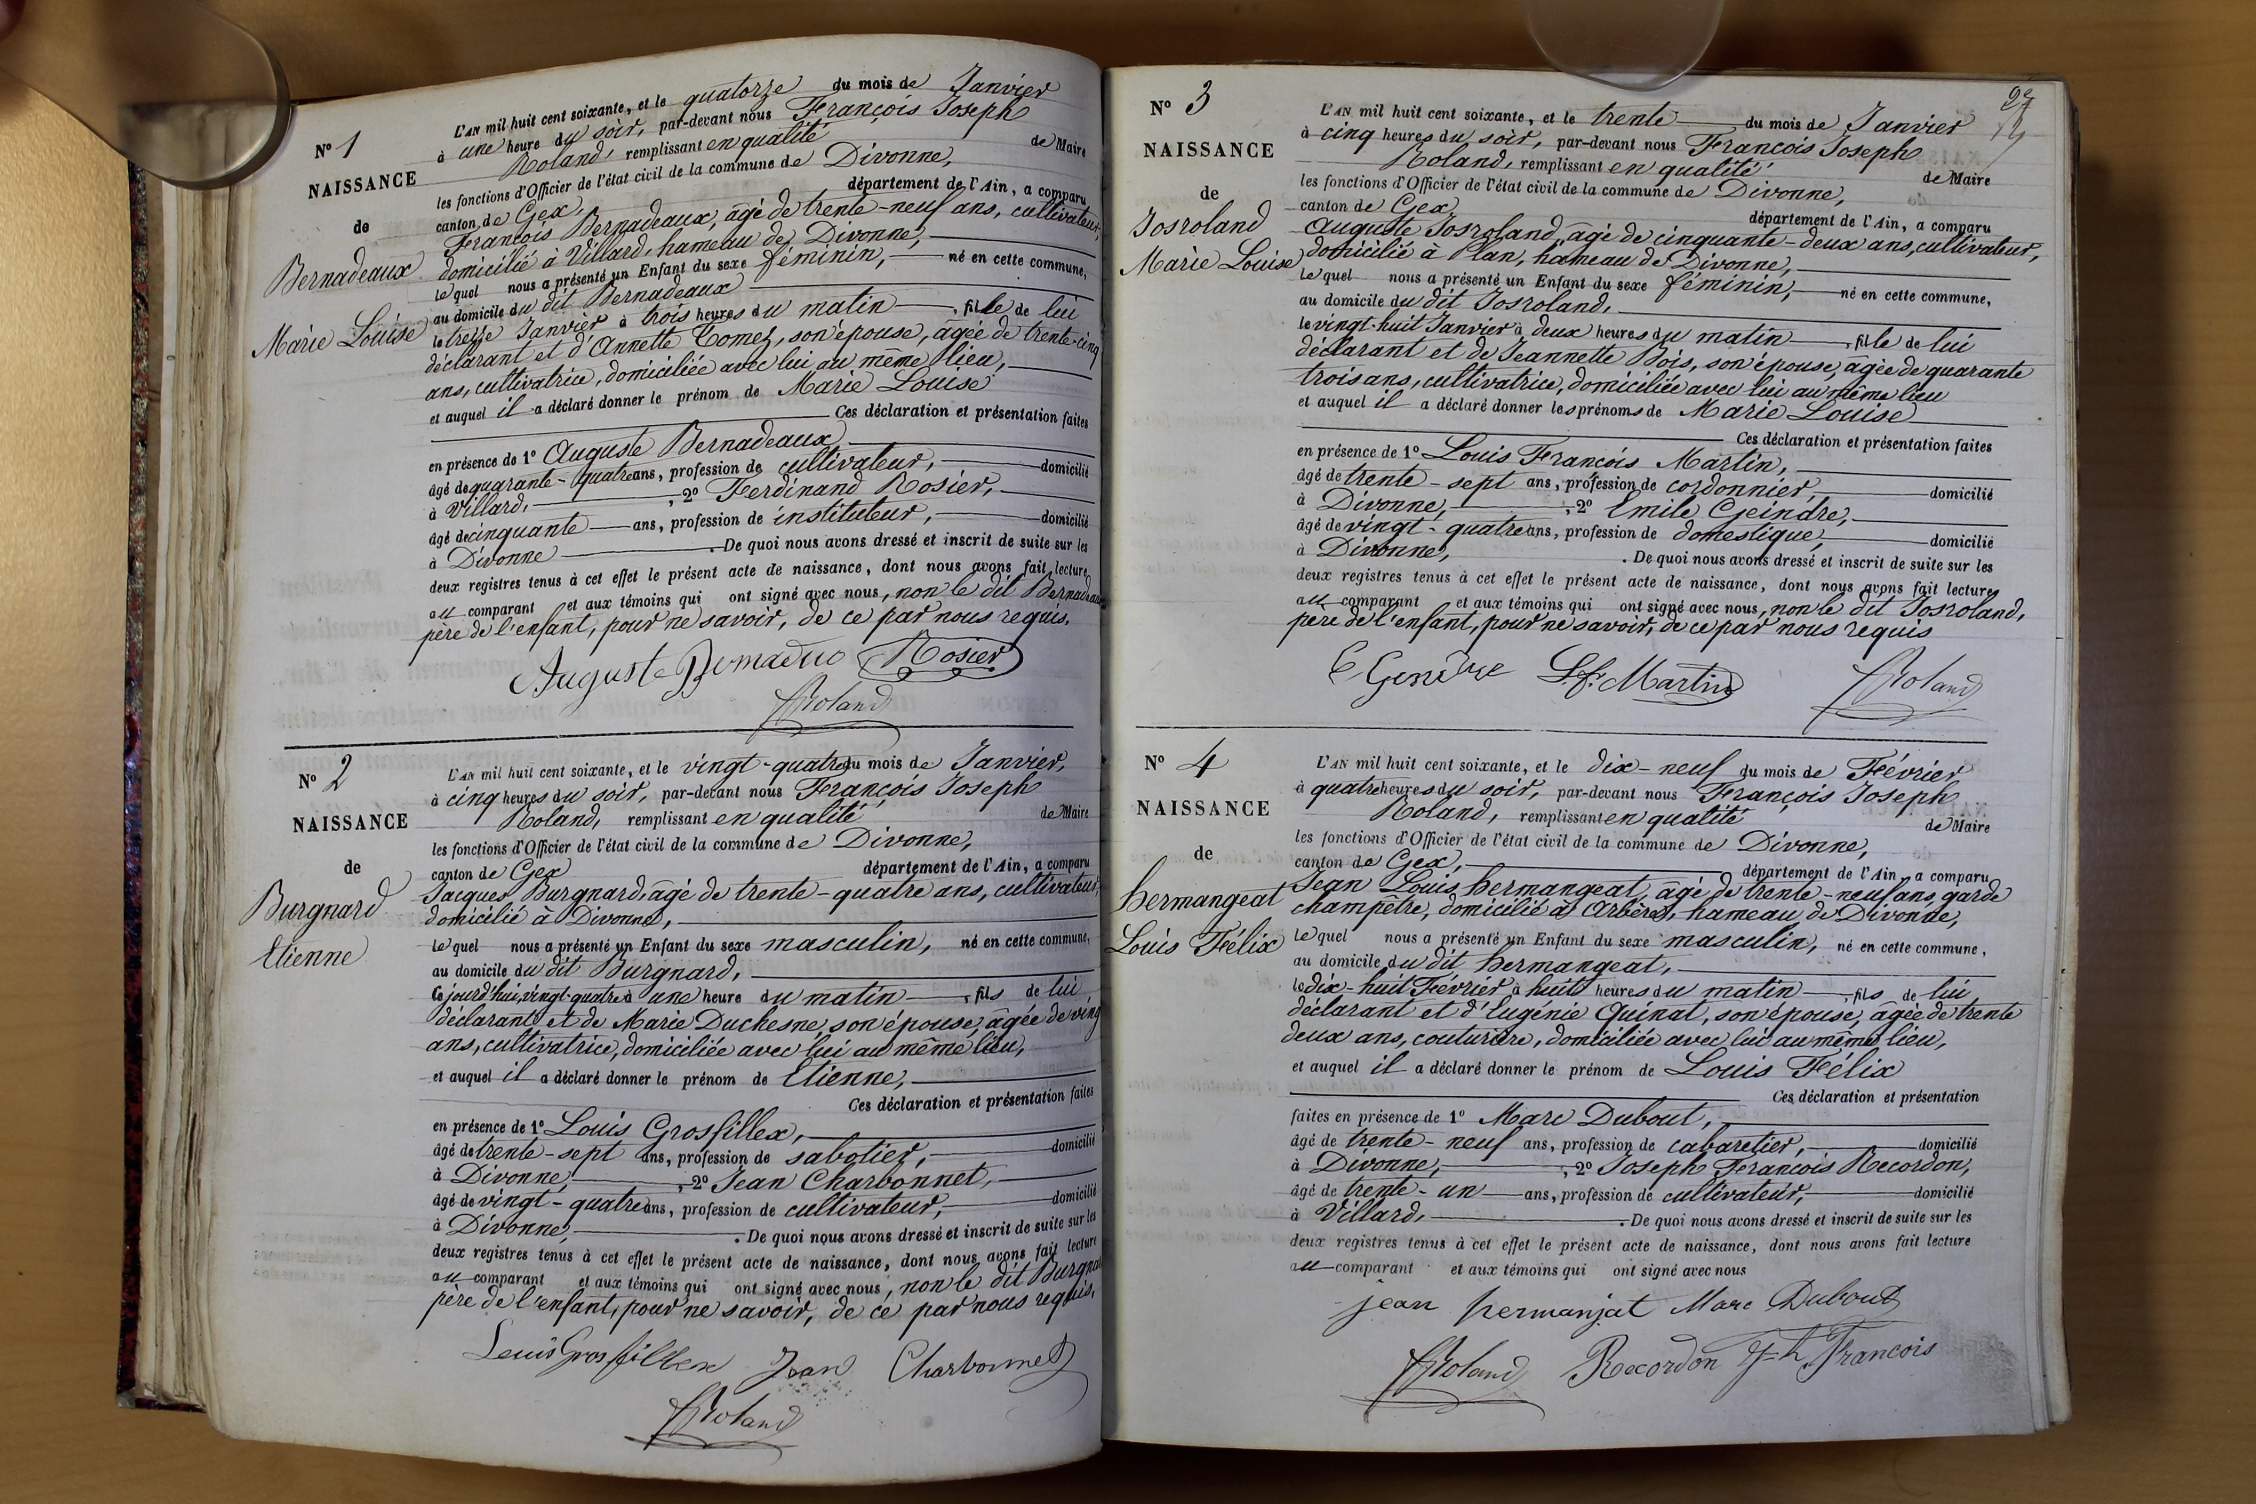 N° 1
NAISSANCE
de
Bernadeaux
Marie Louise
L'AN mil huit cent soixante, et le quatorze du mois de Janvier
à une heure du soir, par-devant nous François Joseph
Roland, remplissant en qualité de Maire
les fonctions d'Officier de l'état civil de la commune de Divonne,
canton de Gex, département de l'Ain, a comparu
François Bernadeaux, âgé de trente-neuf ans, cultivateur,
domicilié à Villard, hameau de Divonne,
lequel nous a présenté un Enfant du sexe féminin, né en cette commune,
au domicile du dit Bernadeaux
le treize Janvier à trois heures du matin, fille de lui
déclarant et d'Annette Tomez, son épouse, âgée de trente-cinq
ans, cultivatrice, domiciliée avec lui au même lieu,
et auquel il a déclaré donner le prénom de Marie Louise
Ces déclaration et présentation faites
en présence de 1° Auguste Bernadeaux
âgé de quarante-quatre ans, profession de cultivateur, domicilié
à Villard, , 2° Ferdinand Rosier,
âgé de cinquante ans, profession de instituteur, domicilié
à Divonne . De quoi nous avons dressé et inscrit de suite sur les
deux registres tenus à cet effet le présent acte de naissance, dont nous avons fait lecture
au comparant et aux témoins qui ont signé avec nous, non le dit Bernadeaux
père de l'enfant, pour ne savoir, de ce par nous requis.
Auguste Rosier
Roland
N° 2
NAISSANCE
de
Burgnard
Etienne
L'AN mil huit cent soixante, et le vingt-quatre du mois de Janvier,
à cinq heures du soir, par-devant nous François Joseph
Roland, remplissant en qualité de Maire
les fonctions d'Officier de l'état civil de la commune de Divonne,
canton de Gex département de l'Ain, a comparu
Jacques Burgnard, âgé de trente-quatre ans, cultivateur,
domicilié à Divonne,
lequel nous a présenté un Enfant du sexe masculin, né en cette commune,
au domicile du dit Burgnard,
ce jourd'hui, vingt-quatre à une heure du matin , fils de lui
déclarant et de Marie Duchesne, son épouse, âgée de vingt
ans, cultivatrice, domiciliée avec lui au même lieu,
et auquel il a déclaré donner le prénom de Etienne,
Ces déclaration et présentation faites
en présence de 1° Louis Grosfillex,
âgé de trente-sept ans, profession de sabotier, domicilié
à Divonne, , 2° Jean Charbonnet,
âgé de vingt-quatre ans, profession de cultivateur, domicilié
à Divonne, . De quoi nous avons dressé et inscrit de suite sur les
deux registres tenus à cet effet le présent acte de naissance, dont nous avons fait lecture
au comparant et aux témoins qui ont signé avec nous, non le dit Burgna
père de l'enfant, pour ne savoir, de ce par nous requis,
Louis Grosfillex Jean Charbonnet
Roland
22
N° 3
NAISSANCE
de
Josroland
Marie Louise
L'AN mil huit cent soixante, et le trente du mois de Janvier
à cinq heures du soir, par-devant nous François Joseph
Roland, remplissant en qualité de Maire
les fonctions d'Officier de l'état civil de la commune de Divonne,
canton de Gex département de l'Ain, a comparu
Auguste Josroland, âgé de cinquante-deux ans, cultivateur,
domicilié à Plan, hameau de Divonne,
lequel nous a présenté un Enfant du sexe féminin, né en cette commune,
au domicile du dit Josroland,
le vingt-huit Janvier à deux heures du matin , fille de lui
déclarant et de Jeannette Bois, son épouse, âgée de quarante
trois ans, cultivatrice, domiciliée avec lui au même lieu
et auquel il a déclaré donner les prénoms de Marie Louise
Ces déclaration et présentation faites
en présence de 1° Louis François Martin,
âgé de trente-sept ans, profession de cordonnier, domicilié
à Divonne, , 2° Emile Geindre,
âgé de vingt-quatre ans, profession de domestique, domicilié
à Divonne, . De quoi nous avons dressé et inscrit de suite sur les
deux registres tenus à cet effet le présent acte de naissance, dont nous avons fait lecture
au comparant et aux témoins qui ont signé avec nous, non le dit Josroland,
père de l'enfant, pour ne savoir, de ce par nous requis
L.f. Martin Roland
N° 4
NAISSANCE
de
hermangeat
Louis Félix
L'AN mil huit cent soixante, et le dix-neuf du mois de Février
à quatre heures du soir, par-devant nous François Joseph
Roland, remplissant en qualité de Maire
les fonctions d'Officier de l'état civil de la commune de Divonne,
canton de Gex, département de l'Ain, a comparu
Jean Louis hermangeat, âgé de trente-neuf ans, garde
champêtre, domicilié à Arbère, hameau de Divonne,
lequel nous a présenté un Enfant du sexe masculin, né en cette commune,
au domicile du dit hermangeat,
le dix-huit Février à huit heures du matin , fils de lui
déclarant et d'Eugénie Quinat, son épouse, âgée de trente
deux ans, couturière, domiciliée avec lui au même lieu,
et auquel il a déclaré donner le prénom de Louis Félix
Ces déclaration et présentation
faites en présence de 1° Marc Dubout,
âgé de trente-neuf ans, profession de cabaretier, domicilié
à Divonne, , 2° Joseph François Recordon,
âgé de trente-un ans, profession de cultivateur, domicilié
à Villard, . De quoi nous avons dressé et inscrit de suite sur les
deux registres tenus à cet effet le présent acte de naissance, dont nous avons fait lecture
au comparant et aux témoins qui ont signé avec nous
jean hermanjat Marc Dubout
Roland Recordon Jh François